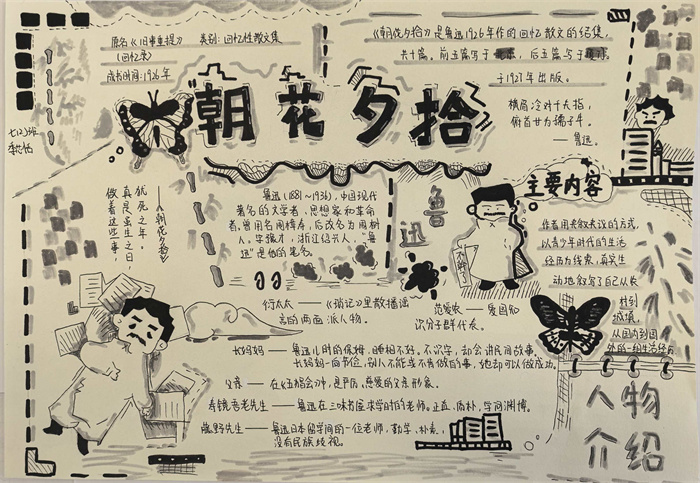 原名《旧事重提》 类别：回忆性散文集
（回忆录）
成书时间：1926年
《朝花夕拾》是鲁迅1926年作的回忆散文的结集，
共十篇。前五篇写于 后五篇写于
于1927年出版。
横眉冷对千夫指，
俯首甘为孺子牛。
——鲁迅
七(2)班
朝花夕拾
——《朝花夕拾》
犹死之年。
真是虽生之日，
做着这些事，
鲁迅（1881～1936），中国现代
著名的文学者，思想家和革命
者，曾用名周樟寿，后改名为周树
人。字豫才，浙江绍兴人。“鲁
迅”是他的笔名。
鲁迅
主要内容
作者用夹叙夹议的方式，
以青少年时代的生活
经历为线索，真实生
动地叙写了自己从农
村到
城镇，
从国内到国
外的一组生活经历
衍太太——《琐记》里散播谣
言的两面派人物。
范爱农——爱国知
识分子群代表。
长妈妈——鲁迅儿时的保姆，睡相不好。不识字，却会讲民间故事。
长妈妈一向节俭，别人不能或不肯做的事，她却可以做成功。
父亲——在《五猖会》中，是严厉，慈爱的父亲形象。
寿镜吾老先生——鲁迅在三味书屋求学时的老师。正直、质朴，学问渊博。
藤野先生——鲁迅日本留学间的一位老师，勤学、朴素，
没有民族歧视。
人物
介绍